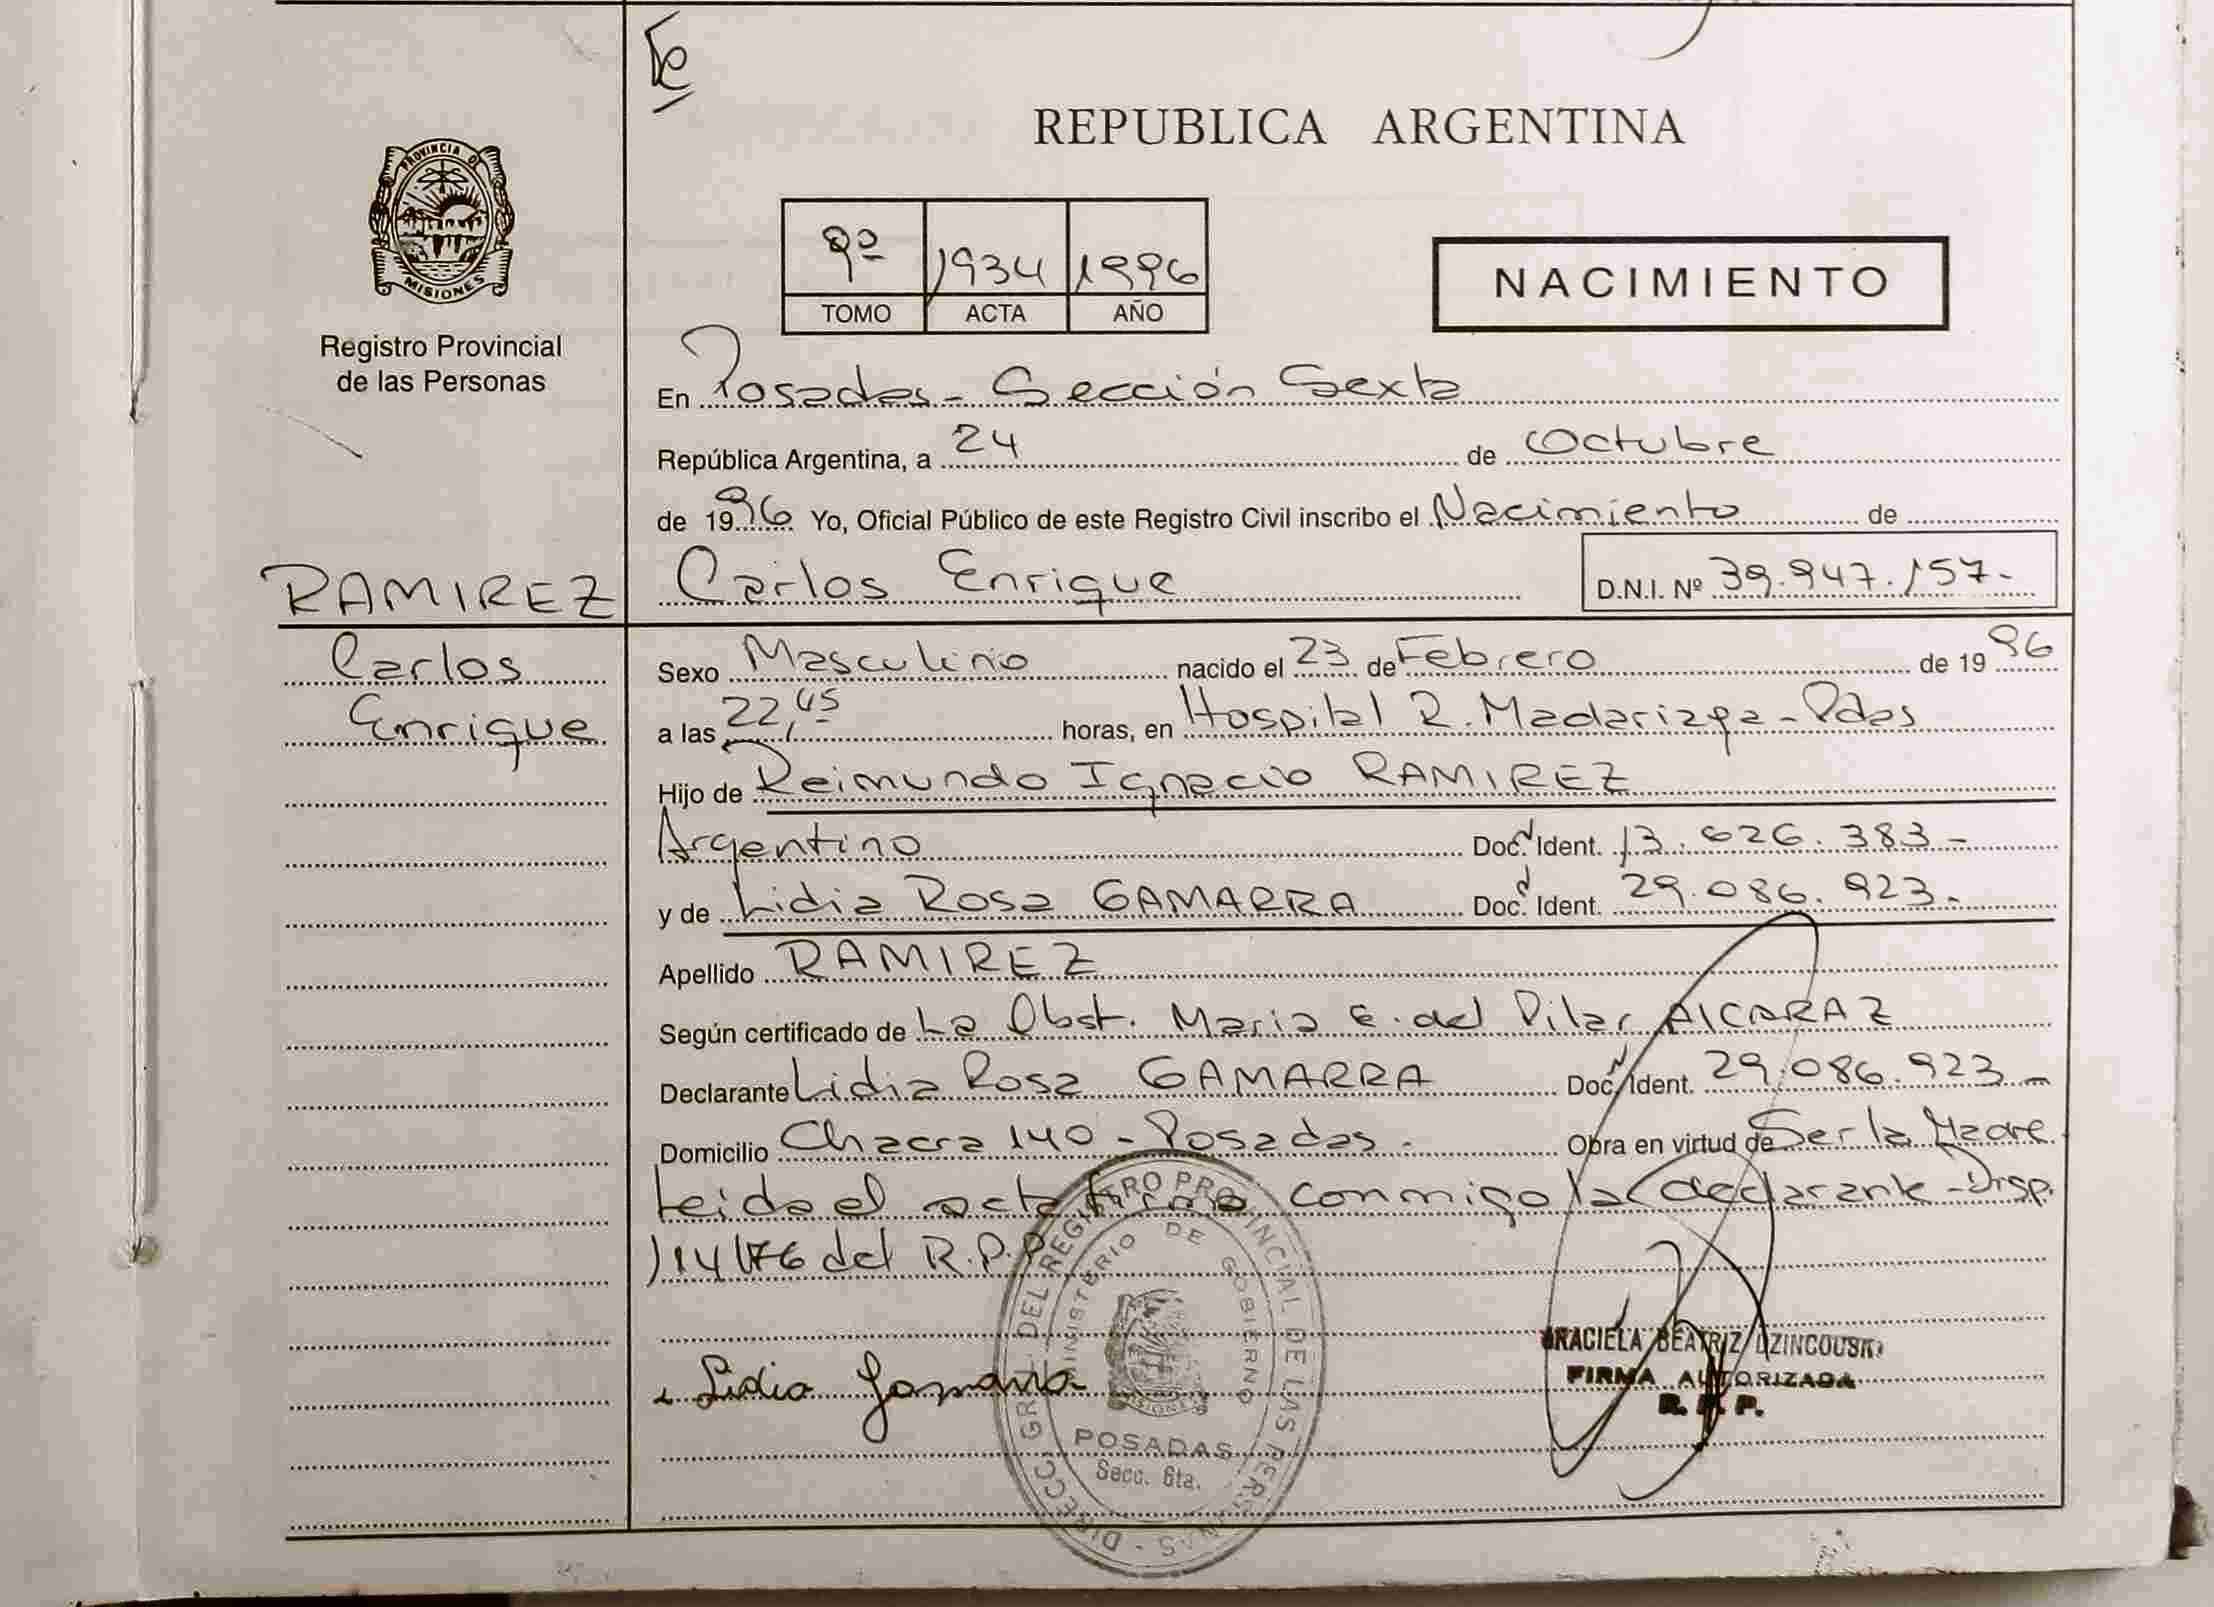 REPUBLICA ARGENTINA
PROVINCIA D
MISIONES
Registro Provincial
de las Personas
9º 1934 1996
TOMO ACTA AÑO
NACIMIENTO
En Posadas - Sección Sexta
República Argentina, a 24 de Octubre
de 1996 Yo, Oficial Público de este Registro Civil inscribo el Nacimiento de
RAMIREZ
Carlos
Enrique
Carlos Enrique D.N.I. Nº 39.947.157.-
Sexo Masculino nacido el 23 de Febrero de 1996
a las 22,45 horas, en Hospital R. Madariaga - Pdas
Hijo de Reimundo Ignacio RAMIREZ
Argentino Doc. Ident. 13.626.383-
y de Lidia Rosa GAMARRA Doc. Ident. 29.086.923-
Apellido RAMIREZ
Según certificado de La Obst. Maria E. del Pilar ALCARAZ
Declarante Lidia Rosa GAMARRA Doc. Ident. 29.086.923-
Domicilio Chacra 140 - Posadas. Obra en virtud de Ser la Madre
Leida el acta firma conmigo la declarante - Disp.
114/76 del R.P.P.
Lidia Gamarra
DIRECC. GRL. DEL REGISTRO PROVINCIAL DE LAS PERSONAS
MINISTERIO DE GOBIERNO
MISIONES
POSADAS
Secc. 6ta.
GRACIELA BEATRIZ DZINCOUSKI
FIRMA AUTORIZADA
R. P. P.